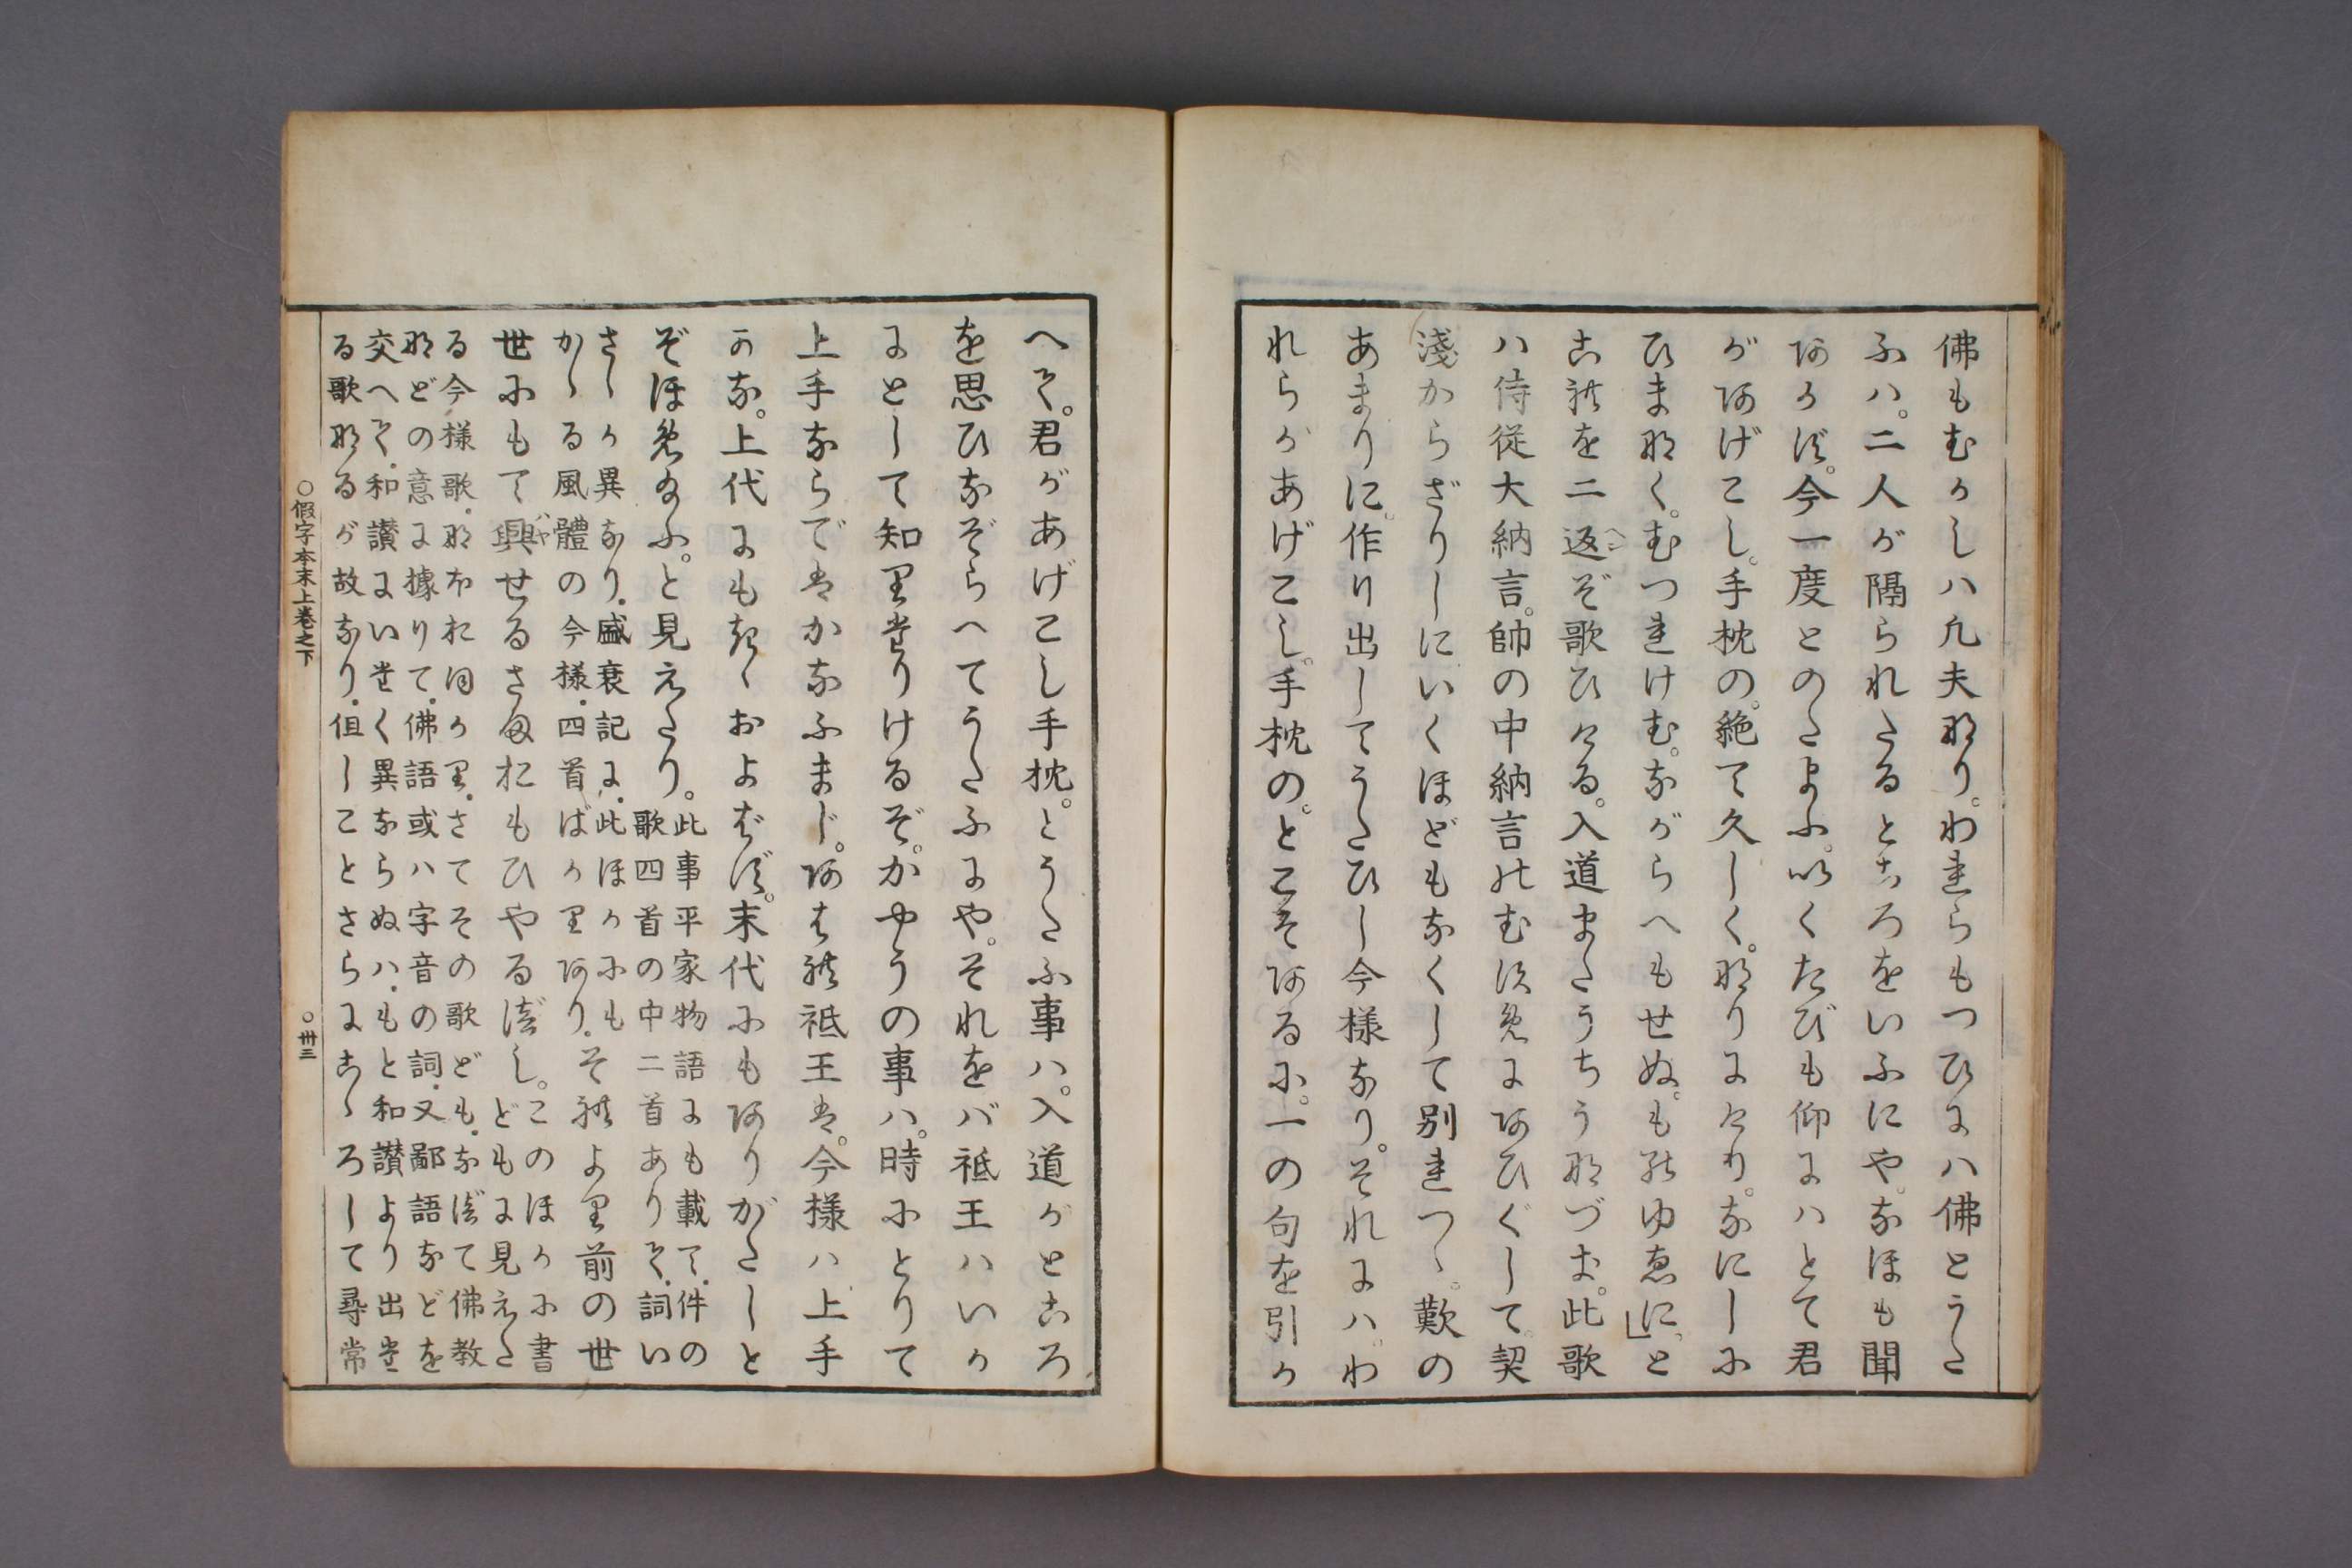 佛もむかしハ凡夫なり。われらもつひにハ佛とうた
ふハ。二人が隔られたるところをいふにや。なほも聞
あかず。今一度とのたまふ。いくたびも仰にハとて君
があげこし。手枕の。絶て久しく。なりにけり。なにしに
ひまなく。むつれけむ。ながらへもせぬ。ものゆゑに。」と
これを二返ぞ歌ひける。入道またうちうなづき。此歌
ハ侍従大納言。帥の中納言のむすめにあひぐして。契
淺からざりしに。いくほどもなくして別れつゝ。歎の
あまりに。作り出してうたひし今様なり。それにハ。わ
れらがあげこし。手枕の。とこそあるに。一の句を引か
へて。君があげこし手枕。とうたふ事ハ。入道がところ
を思ひなぞらへてうたふにや。それをバ祇王ハいか
にとして知りたりけるぞ。かやうの事ハ。時にとりて
上手ならではかなふまじ。あはれ祇王は。今様ハ上手
かな。上代にもきゝおよばず。末代にもありがたしと
ぞほめ給ふ。と見えたり。
此事平家物語にも載て。件の
歌四首の中二首ありて。詞い
さゝか異なり。盛衰記に。此ほかにも
かゝる風體の今様。四首ばかりあり。
それより前の世
世にもて興せるさまおもひやるべし。
このほかに書
どもに見えた
る今様歌。なおれ同かり。さてその歌ども。なべて佛教
などの意に據りて。佛語或ハ字音の詞。又鄙語などを
交へて。和讃にいたく異ならぬハ。もと和讃より出た
る歌なるが故なり。但しことさらにこゝろして尋常
○假字本末上巻之下
○卅三